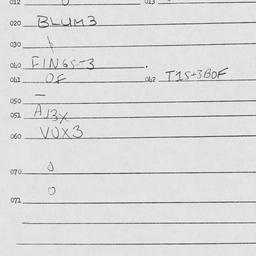 012 013
020 BLUM3
030
040 FINGS-3
041 OF 042 T1S+3BOF
050 —
051 A13X
060 VUX3
070
071